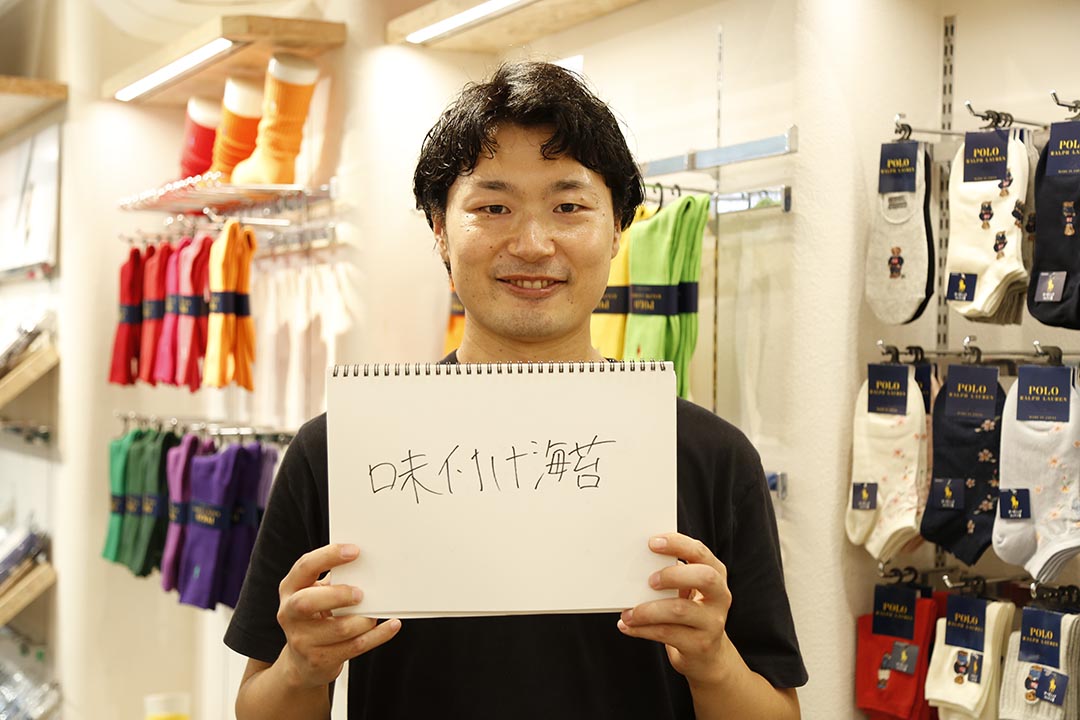 味付け海苔
POLO
RALPH LAUREN
POLO
RALPH LAUREN
POLO
RALPH LAUREN
POLO
RALPH LAUREN
POLO
RALPH LAUREN
POLO
RALPH LAUREN
POLO
POLO
POLO